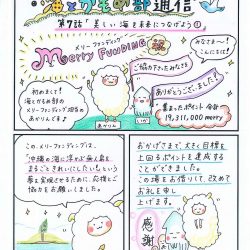 海とかもめ部通信
第7話「美しい海を未来につなげよう①」
メリーファンディング
Merry FUNDING 祝
みなさまー!
こんにちは!
ご協力下さったみなさま
ありがとうございました!
集まったポイント合計
19,311,000 merry
初めまして!
海とかもめ部の
メリープロジェクト担当
あかりんです♪
あかりん
いか
この、メリーファンディングは、
「沖縄の海に浮かぶ無人島を
まるごときれいにしたい!」という
夢を実現させるために、応援と
ご協力をお願いしました。
おかげさまで、大きく目標を
上回るポイントを達成する
ことができました。
この場をお借りして、改めて
お礼を申し
上げます。
感謝